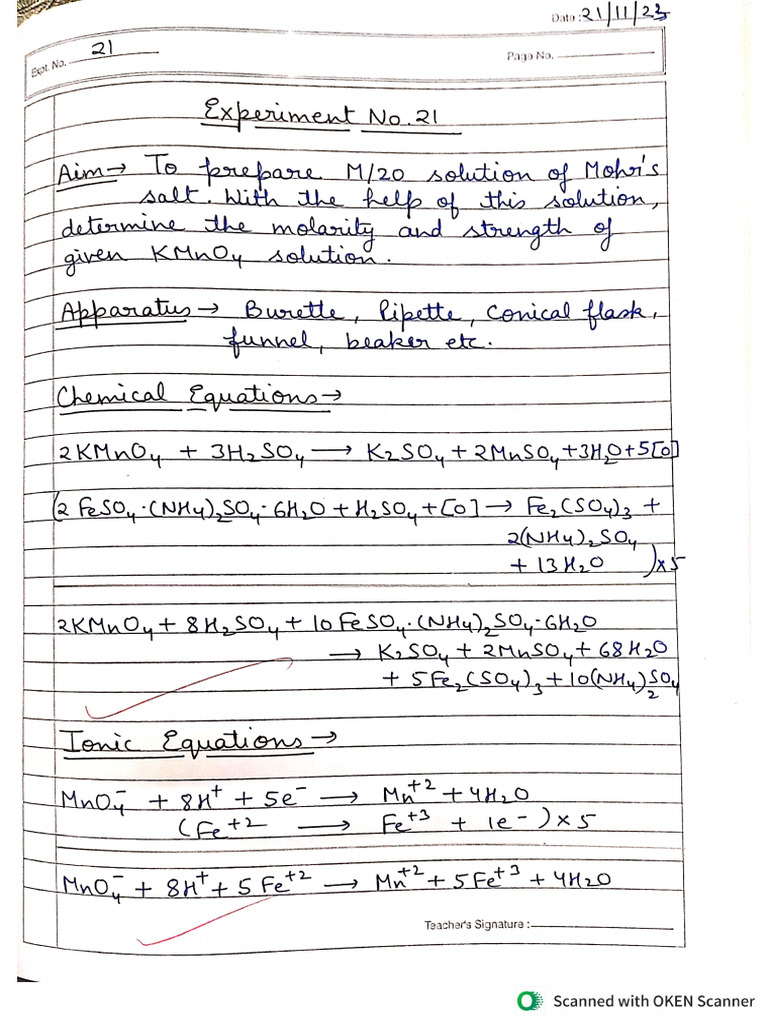 Date : 21/11/23
Expt. No. 21
Page No.
Experiment No. 21
Aim → To prepare M/20 solution of Mohr's
salt. With the help of this solution,
determine the molarity and strength of
given KMnO4 solution.
Apparatus → Burette, Pipette, Conical flask,
funnel, beaker etc.
Chemical Equations →
2KMnO4 + 3H2SO4 → K2SO4 + 2MnSO4 + 3H2O + 5[O]
(2 FeSO4·(NH4)2SO4·6H2O + H2SO4 + [O] → Fe2(SO4)3 +
2(NH4)2SO4
+ 13H2O )x5
2KMnO4 + 8H2SO4 + 10FeSO4·(NH4)2SO4·6H2O
→ K2SO4 + 2MnSO4 + 68H2O
+ 5Fe2(SO4)3 + 10(NH4)2SO4
Ionic Equations →
MnO4⁻ + 8H⁺ + 5e⁻ → Mn⁺² + 4H2O
(Fe⁺² → Fe⁺³ + 1e⁻) × 5
MnO4⁻ + 8H⁺ + 5Fe⁺² → Mn⁺² + 5Fe⁺³ + 4H2O
Teacher's Signature :
Scanned with OKEN Scanner